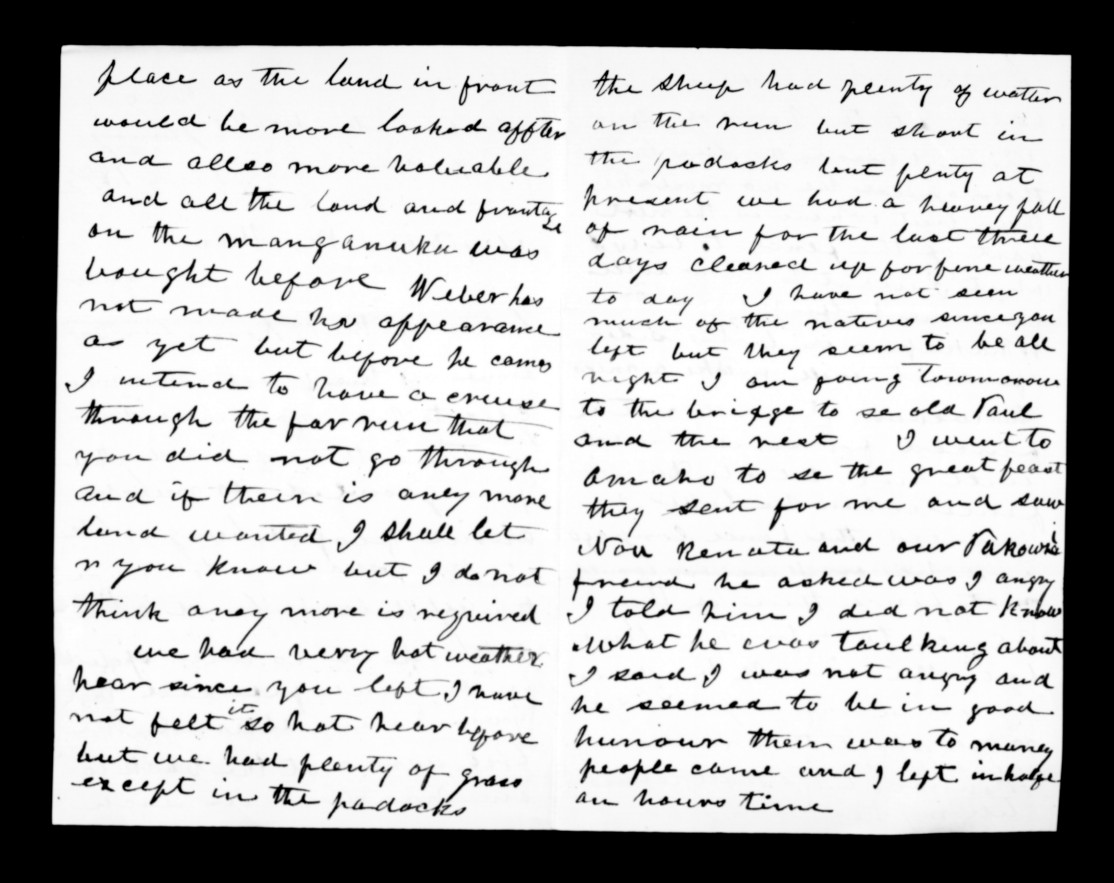 place as the land in front
would be more looked affter
and allso more valuable
and all the land and frontage
on the manganuka was
bought before Weber has
not made his appearance
as yet but before he comes
I intend to have a creuse
through the far run that
you did not go through
and if their is aney more
land wanted I shall let
you know but I do not
think aney more is required
we had verry hot weather
hear since you left I have
not felt it so hot hear before
but we had plenty of grass
except in the padocks
the sheep had plenty of watter
on the run but short in
the padocks but plenty at
present we had a heavey fall
of rain for the last three
days cleared up for fine weather
to day I have not seen
much of the natives since you
left but they seem to be all
right I am going towmorow
to the bridge to se old Paul
and the rest I went to
Omaho to se the great feast
they sent for me and saw
Renata and our Pakowai
freind he asked was I angry
I told him I did not know
what he was taulking about
I said I was not angry and
he seemed to be in good
humour their was to maney
people came and I left in halfe
an hours time